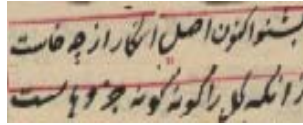 بشنو اکنون اصل انکار از چه خاست
زانکه کل را گونه گونه جزوهاست